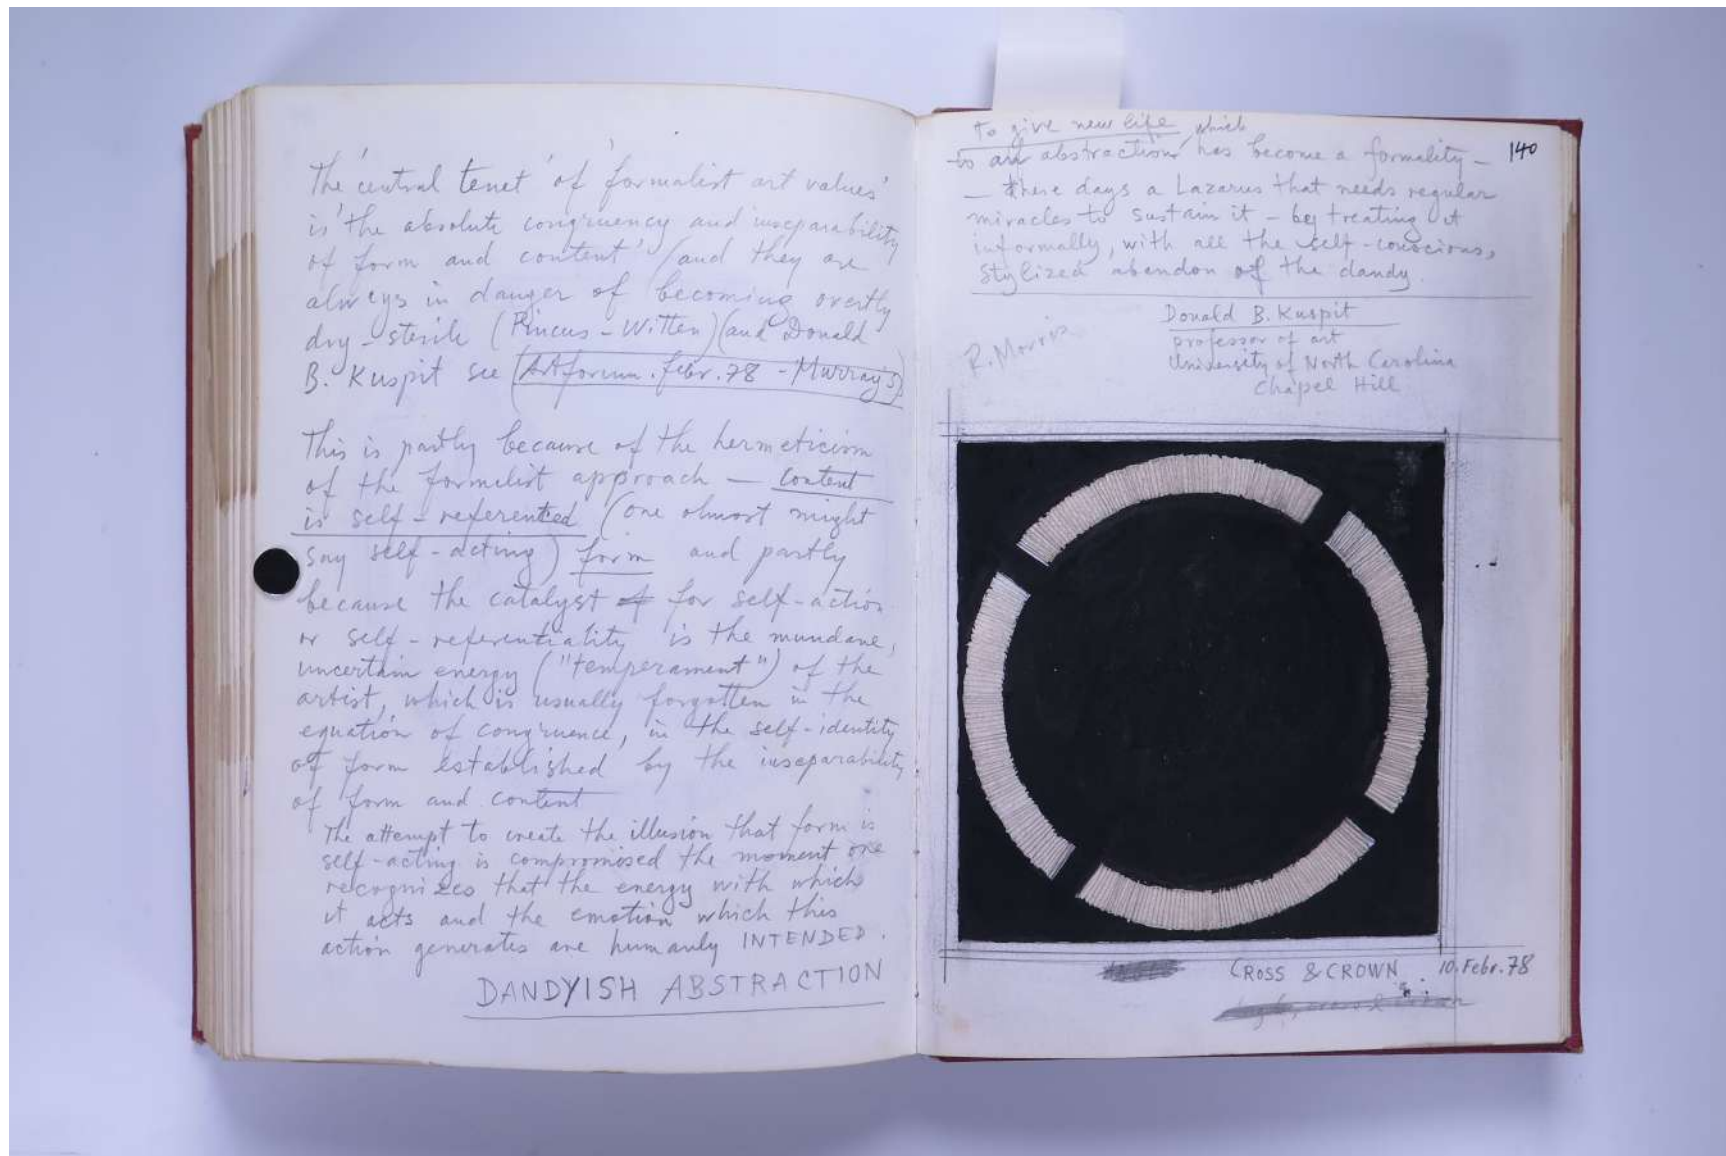 The 'central tenet' of 'formalist art values'
is 'the absolute congruency and inseparability
of form and content' (and they are
always in danger of becoming overtly
dry-sterile (Pincus-Witten) (and Donald
B. Kuspit see (Artforum. febr. 78 - Murray's)
This is partly because of the hermeticism
of the formalist approach — content
is self-referented (one almost might
say self-acting) form and partly
because the catalyst for self-action
or self-referentiality is the mundane,
uncertain energy ("temperament") of the
artist, which is usually forgotten in the
equation of congruence, in the self-identity
of form established by the inseparability
of form and content
The attempt to create the illusion that form is
self-acting is compromised the moment one
recognizes that the energy with which
it acts and the emotion which this
action generates are humanly INTENDED.
DANDYISH ABSTRACTION
140
to give new life which
to an abstraction has become a formality —
— these days a Lazarus that needs regular
miracles to sustain it – by treating it
informally, with all the self-conscious,
stylized abandon of the dandy.
Donald B. Kuspit
professor of art
University of North Carolina
Chapel Hill
R. Morris
CROSS & CROWN 10. Febr. 78